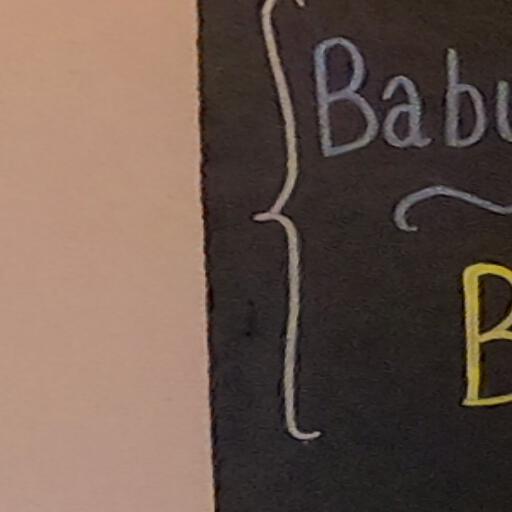 Babu
B